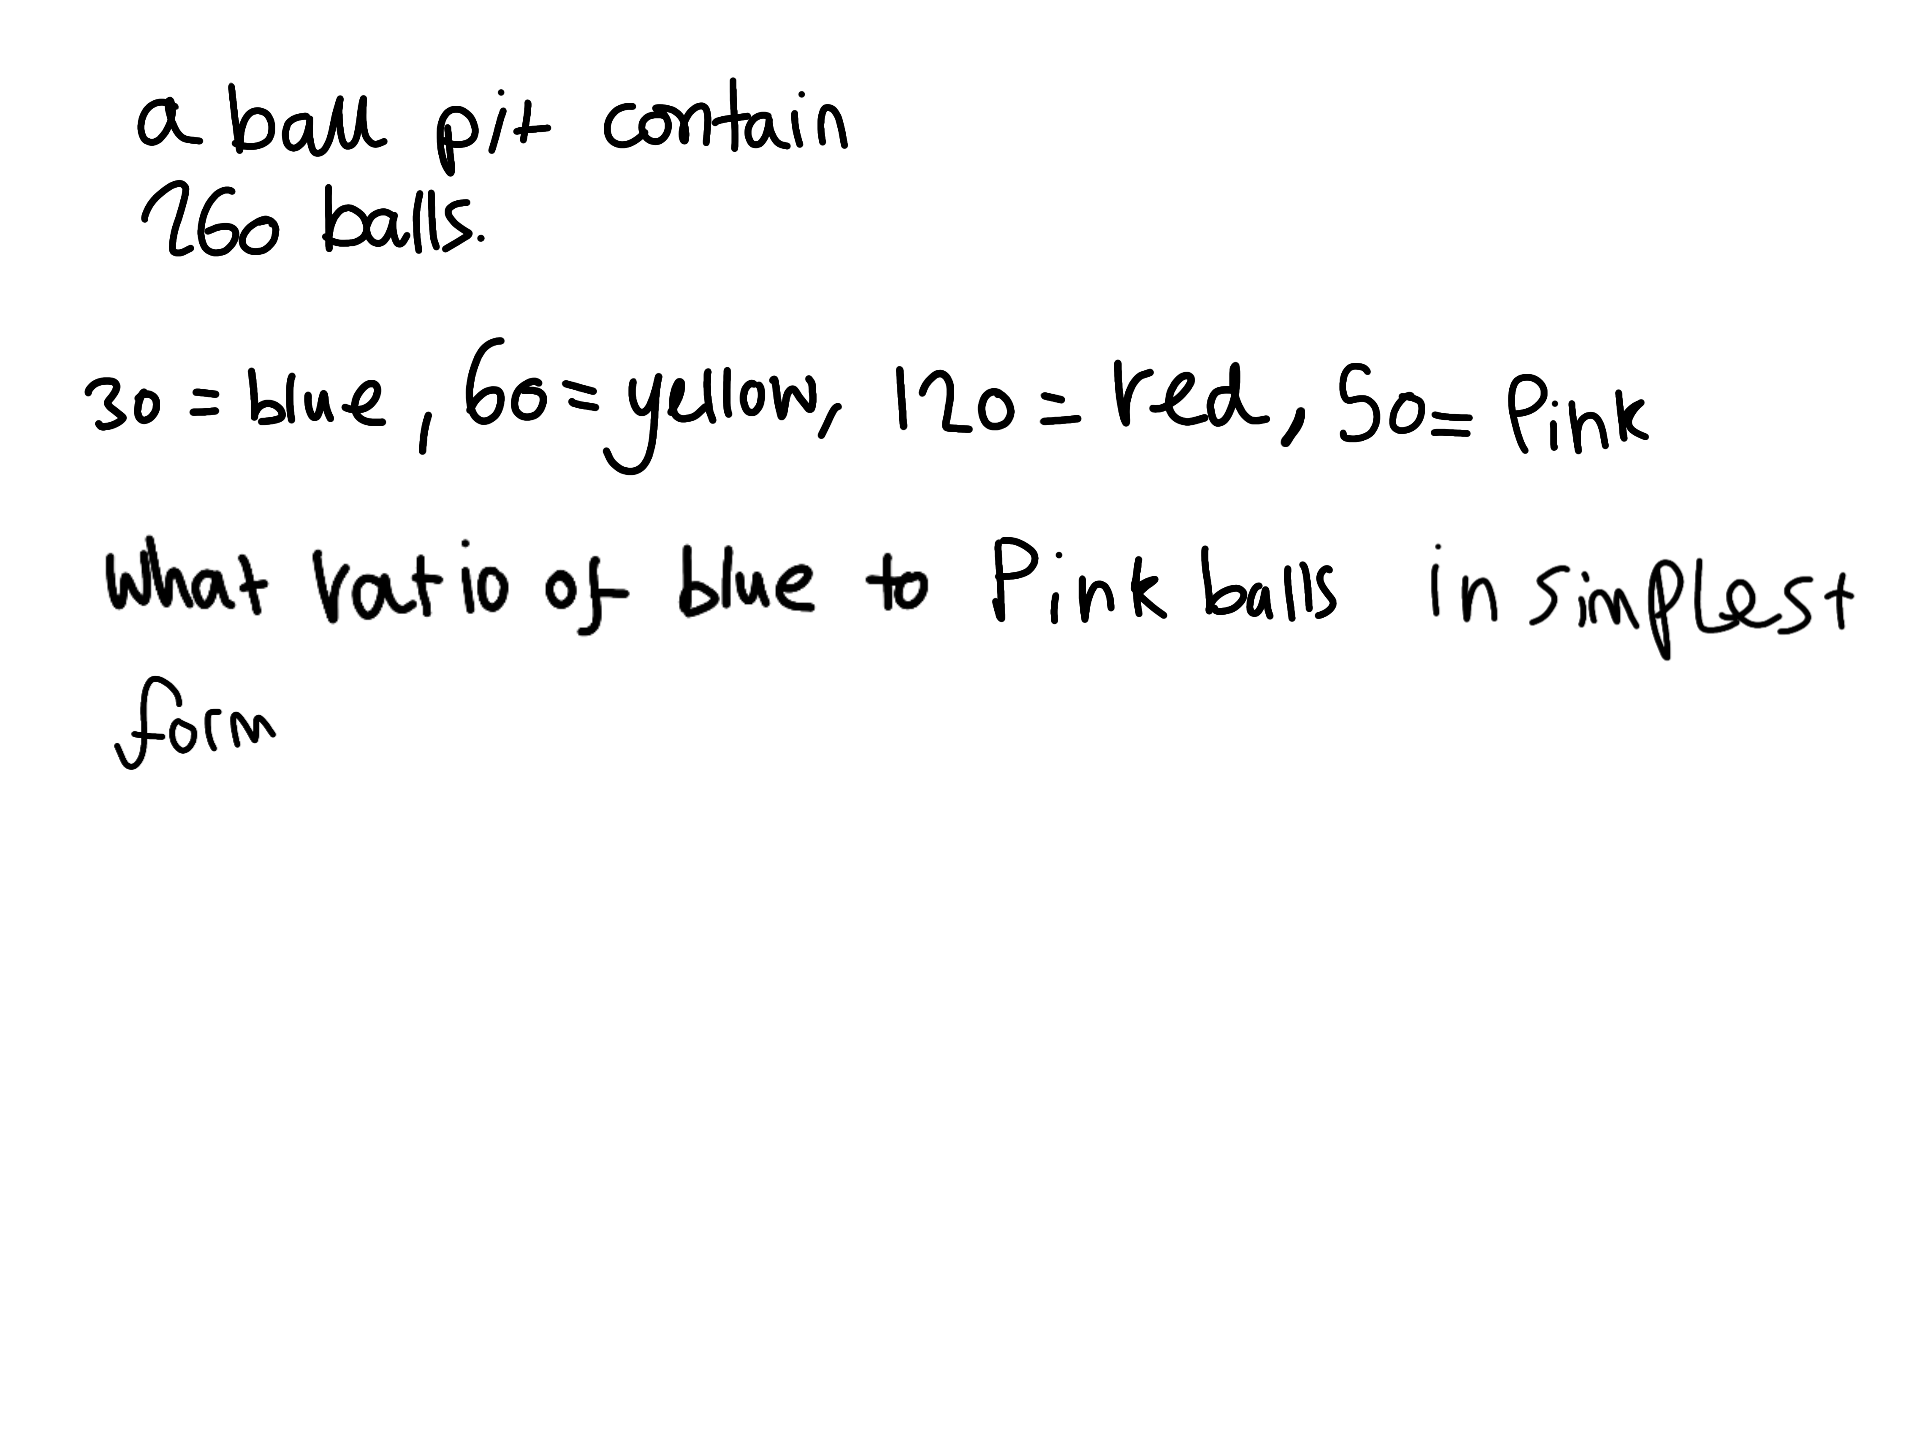 a ball pit contain
260 balls.
30 = blue, 60 = yellow, 120 = red, 50 = Pink
What ratio of blue to Pink balls in simplest
form